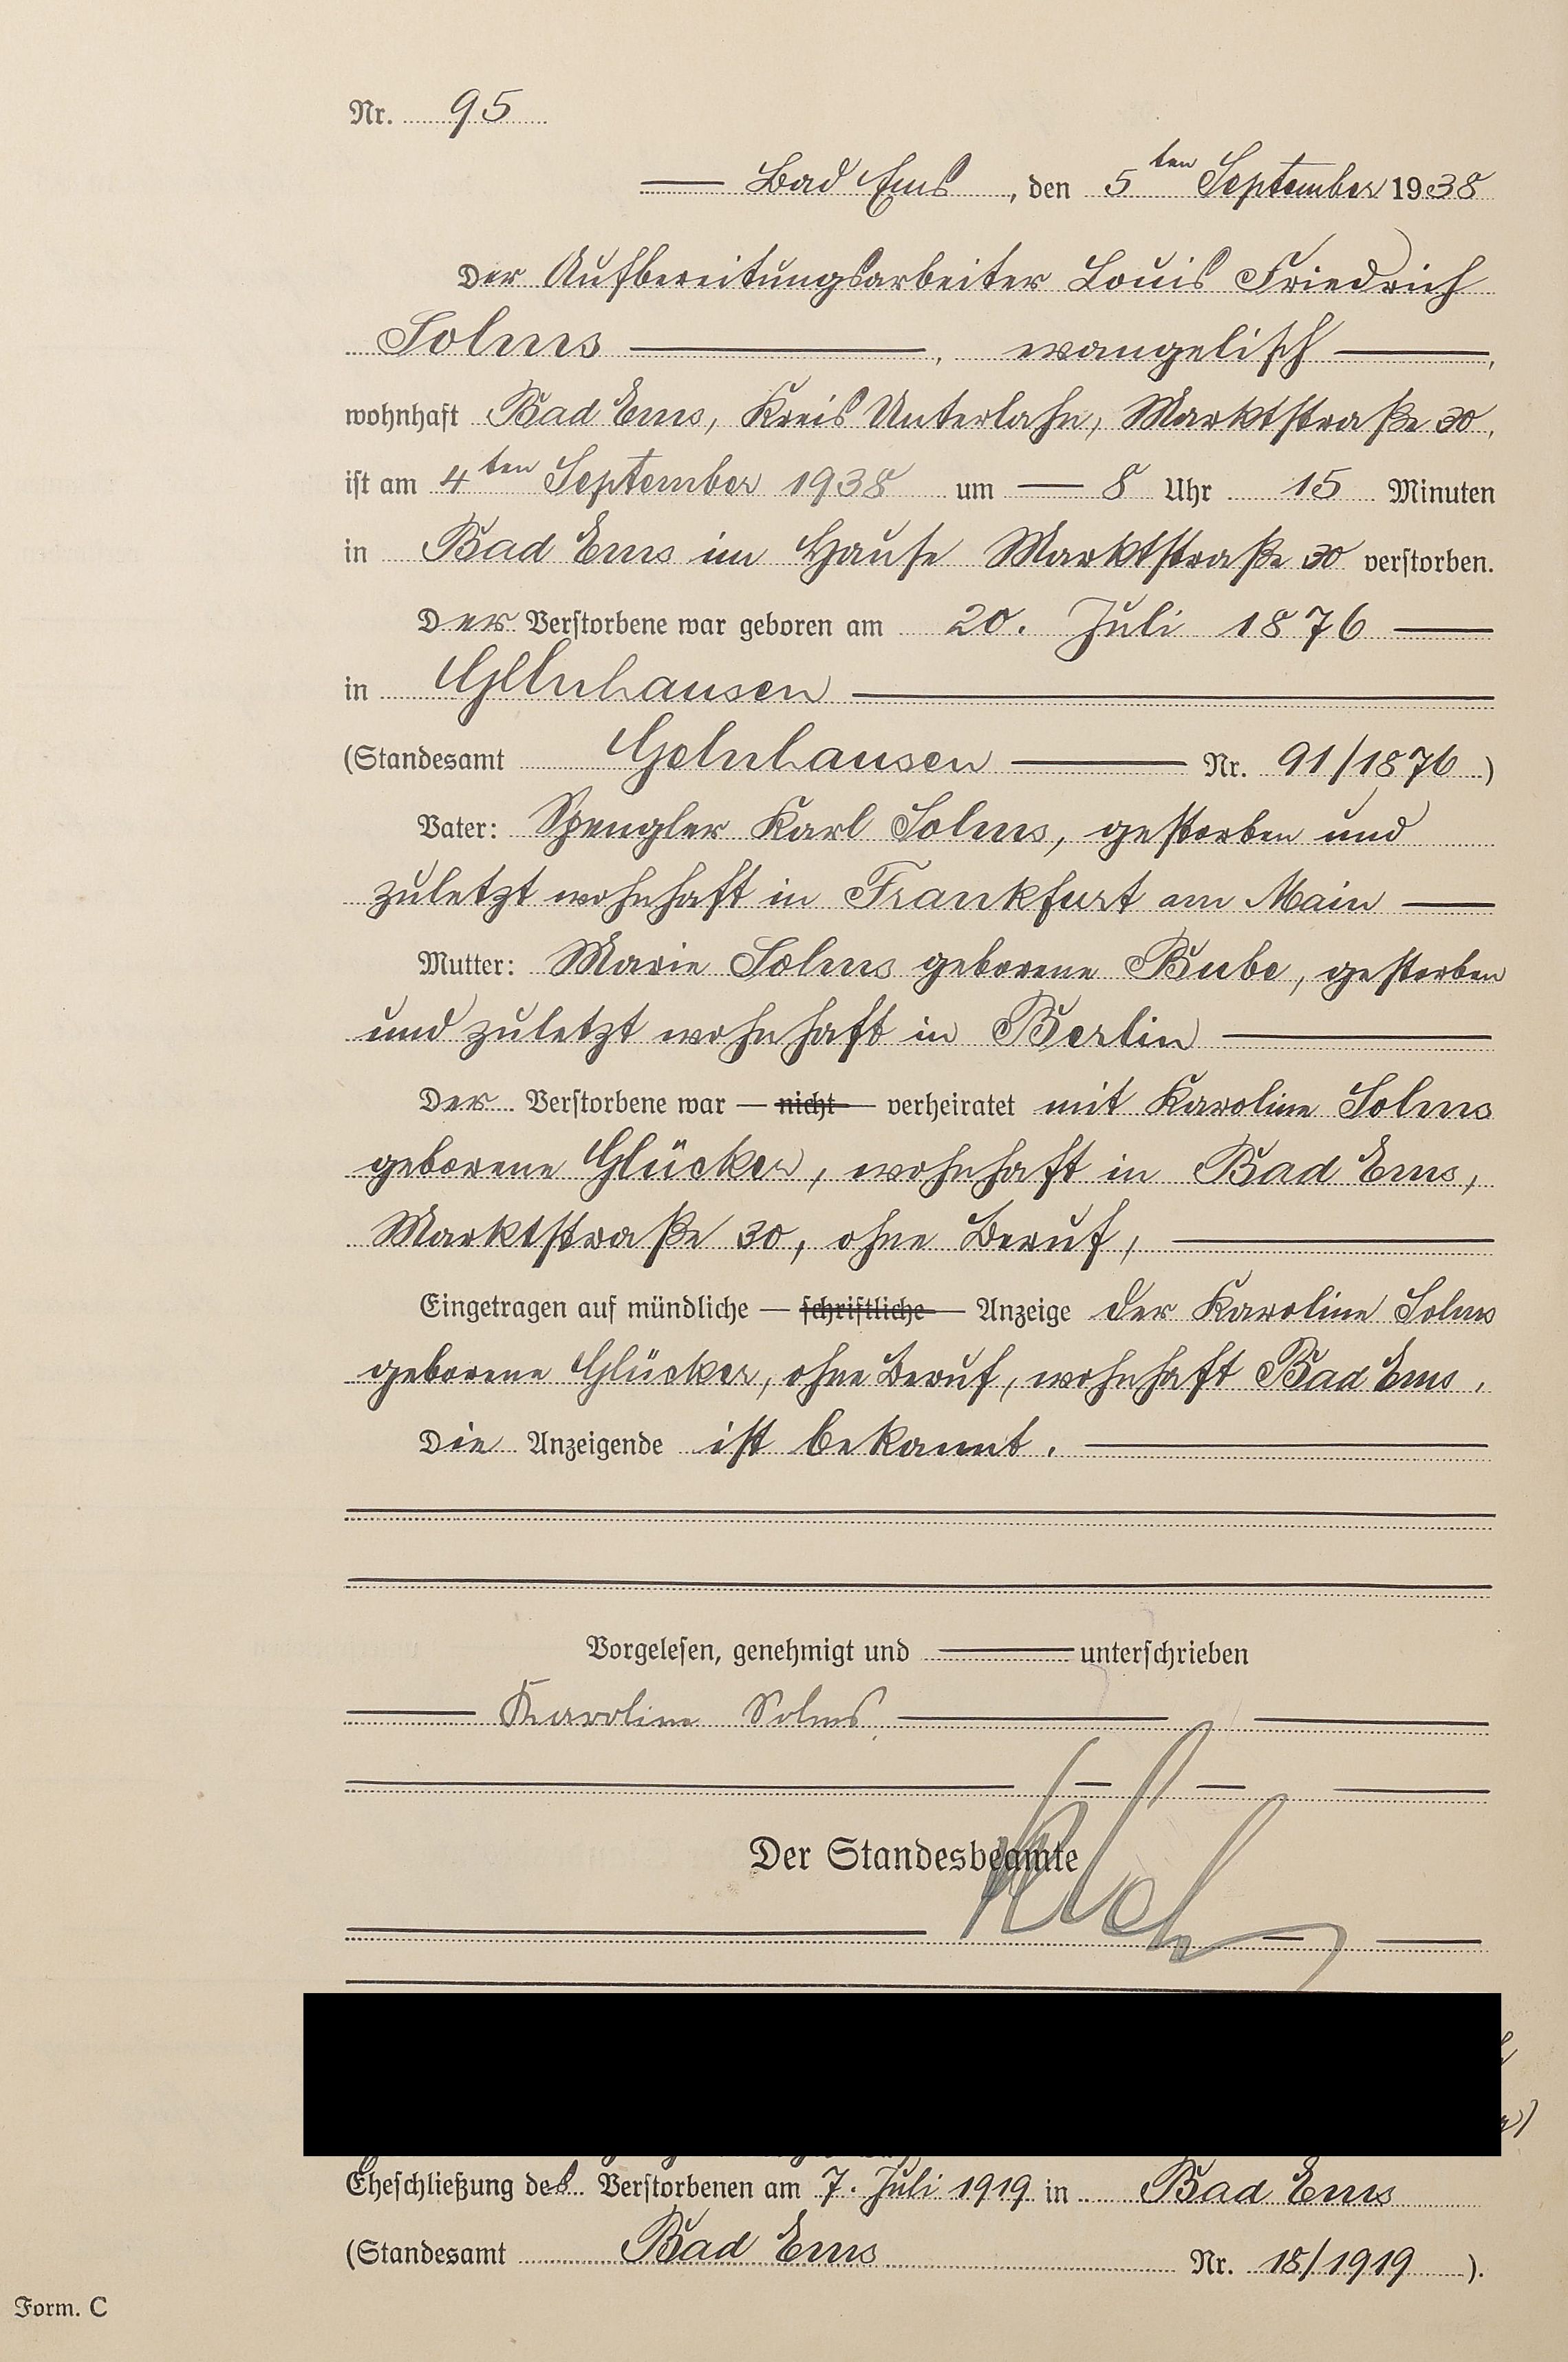 Nr. 95
Bad Ems, den 5ten September 1938
Der Aufbereitungsarbeiter Louis Friedrich
Solms, evangelisch,
wohnhaft Bad Ems, Kreis Unterlahn, Marktstraße 30,
ist am 4ten September 1938 um 8 Uhr 15 Minuten
in Bad Ems im Hause Marktstraße 30 verstorben.
Der Verstorbene war geboren am 20. Juli 1876
in Gelnhausen
(Standesamt Gelnhausen Nr. 91/1876)
Vater: Spengler Karl Solms, gestorben und
zuletzt wohnhaft in Frankfurt am Main
Mutter: Marie Solms geborene Bube, gestorben
und zuletzt wohnhaft in Berlin
Der Verstorbene war — nicht — verheiratet mit Karoline Solms
geborene Glücker, wohnhaft in Bad Ems,
Marktstraße 30, ohne Beruf,
Eingetragen auf mündliche — schriftliche — Anzeige der Karoline Solms
geborene Glücker, ohne Beruf, wohnhaft Bad Ems.
Die Anzeigende ist bekannt.
Vorgelesen, genehmigt und unterschrieben
Karoline Solms
Der Standesbeamte
Eheschließung des Verstorbenen am 7. Juli 1919 in Bad Ems
(Standesamt Bad Ems Nr. 18/1919).
Form. C